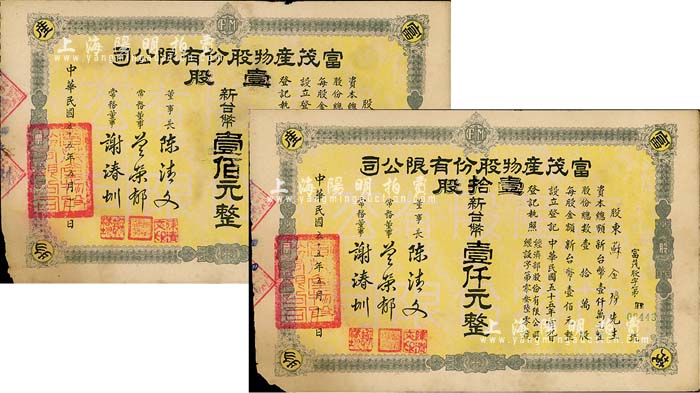 上海陽明拍賣
www.yangmingauction.com
富茂產物股份有限公司
壹股
新台幣壹佰元整
董事長 陳清文
常務董事
常務董事 謝溱圳
中華民國五十五年五月 日
上海陽明拍賣
www.yangmingauction.com
富茂產物股份有限公司
壹拾股
富茂股字第 號
股東 蘇金 先生
資本總額新台幣壹仟萬元整
股份總數壹拾萬股
每股金額新台幣壹佰元整
設立登記 中華民國五十五年
登記執照 經濟部股份有限公司
新台幣壹仟元整
董事長 陳清文
常務董事
常務董事 謝溱圳
中華民國五十五年五月 日